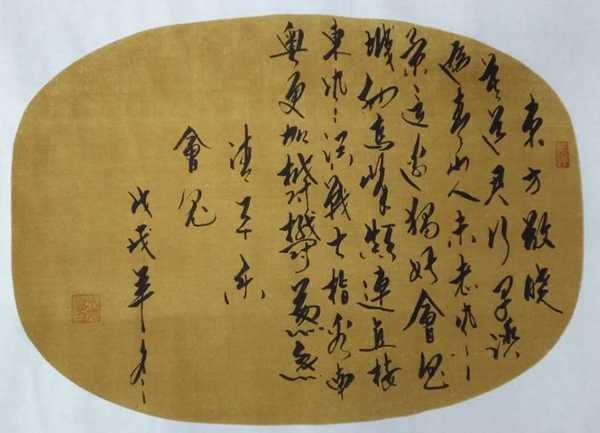 東方欲晓
莫道君行早踏
遍青山人未老風
景這邊獨好會昌
城外高峰顛連直接
東溟战士指看南
粵更加欝欝葱葱
清平樂
會昌
戊戌年冬